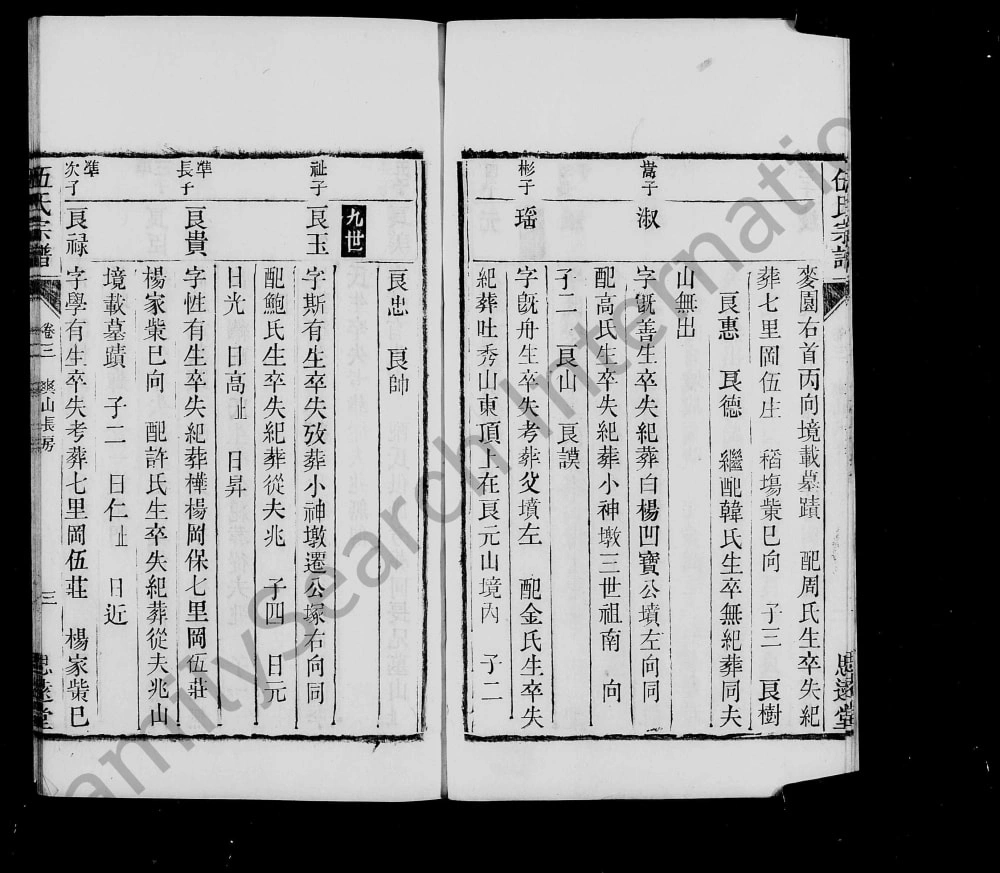 麥園右首丙向境載墓蹟　配周氏生卒失紀
葬七里岡伍庄　稻塲㭰巳向　子三　艮樹
艮惠　艮德　繼配韓氏生卒無紀葬同夫
山無出
嵩子　淑　字旣善生卒失紀葬白楊凹寶公墳左向同
配高氏生卒失紀葬小神墩三世祖南　向
子二　艮山　艮謨
彬子　瑶　字旣舟生卒失考葬父墳左　配金氏生卒失
紀葬吐秀山東頂上在艮元山境內　子二
思遠堂
艮忠　艮帥
九世
祉子　艮玉　字斯有生卒失攷葬小神墩遷公塚右向同
配鮑氏生卒失紀葬從夫兆　子四　日元
日光　日高　日昇
準長子　艮貴　字性有生卒失紀葬樺楊岡保七里岡伍莊
楊家㭰巳向　配許氏生卒失紀葬從夫兆山
境載墓蹟　子二　日仁　日近
準次子　艮禄　字學有生卒失考葬七里岡伍莊　楊家㭰巳
伍氏宗譜　卷三　山長房　三　思遠堂
FamilySearch International